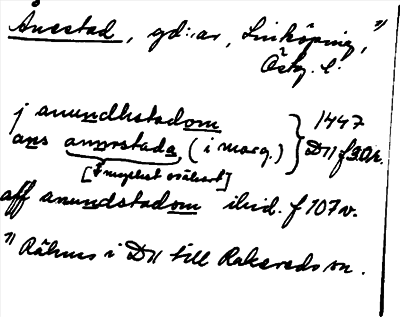 Ånestad, gd:ar, Linköping, 1)
Östg. l:
j anundhstadom } 1447
ans anunstada, (i marg.) } D11 f 30 r.
[? mycket osäkert]
aff anundstadom ibid. f 107 v.
1) Räknas i D11 till Rakereds sn.